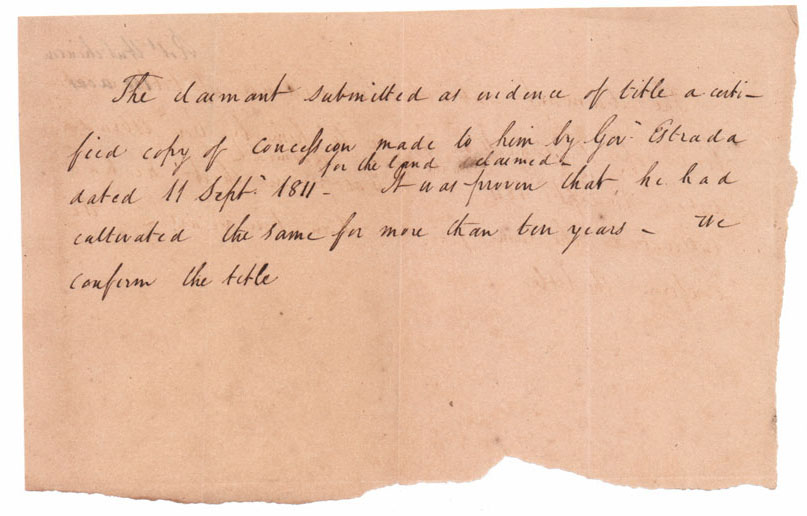 The claimant submitted as evidence of title a certi-
fied copy of Concession made to him by Gov.r Estrada
for the land claimed
dated 11 Sept.r 1811 - It was proven that he had
cultivated the same for more than ten years - We
confirm the title